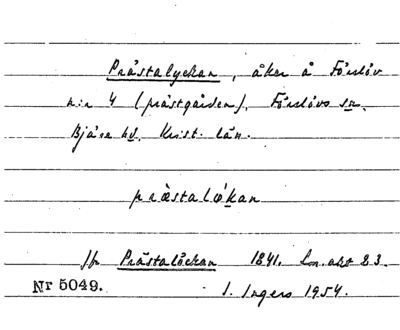 Prästalyckan, åker å Förslöv
n:r 4 (prästgården), Förslövs sn.
Bjäre hd. Krist. län.
præ̀stalø̀kan
jfr Prästalåckan 1841. Lm. akt 23.
Nr 5049. I. Ingers 1954.